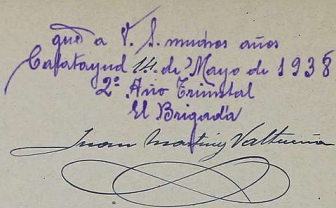 gué a V. S. muchos años
Calatayud 14 de Mayo de 1938
2º Año Triunfal
El Brigada
Juan Martinez